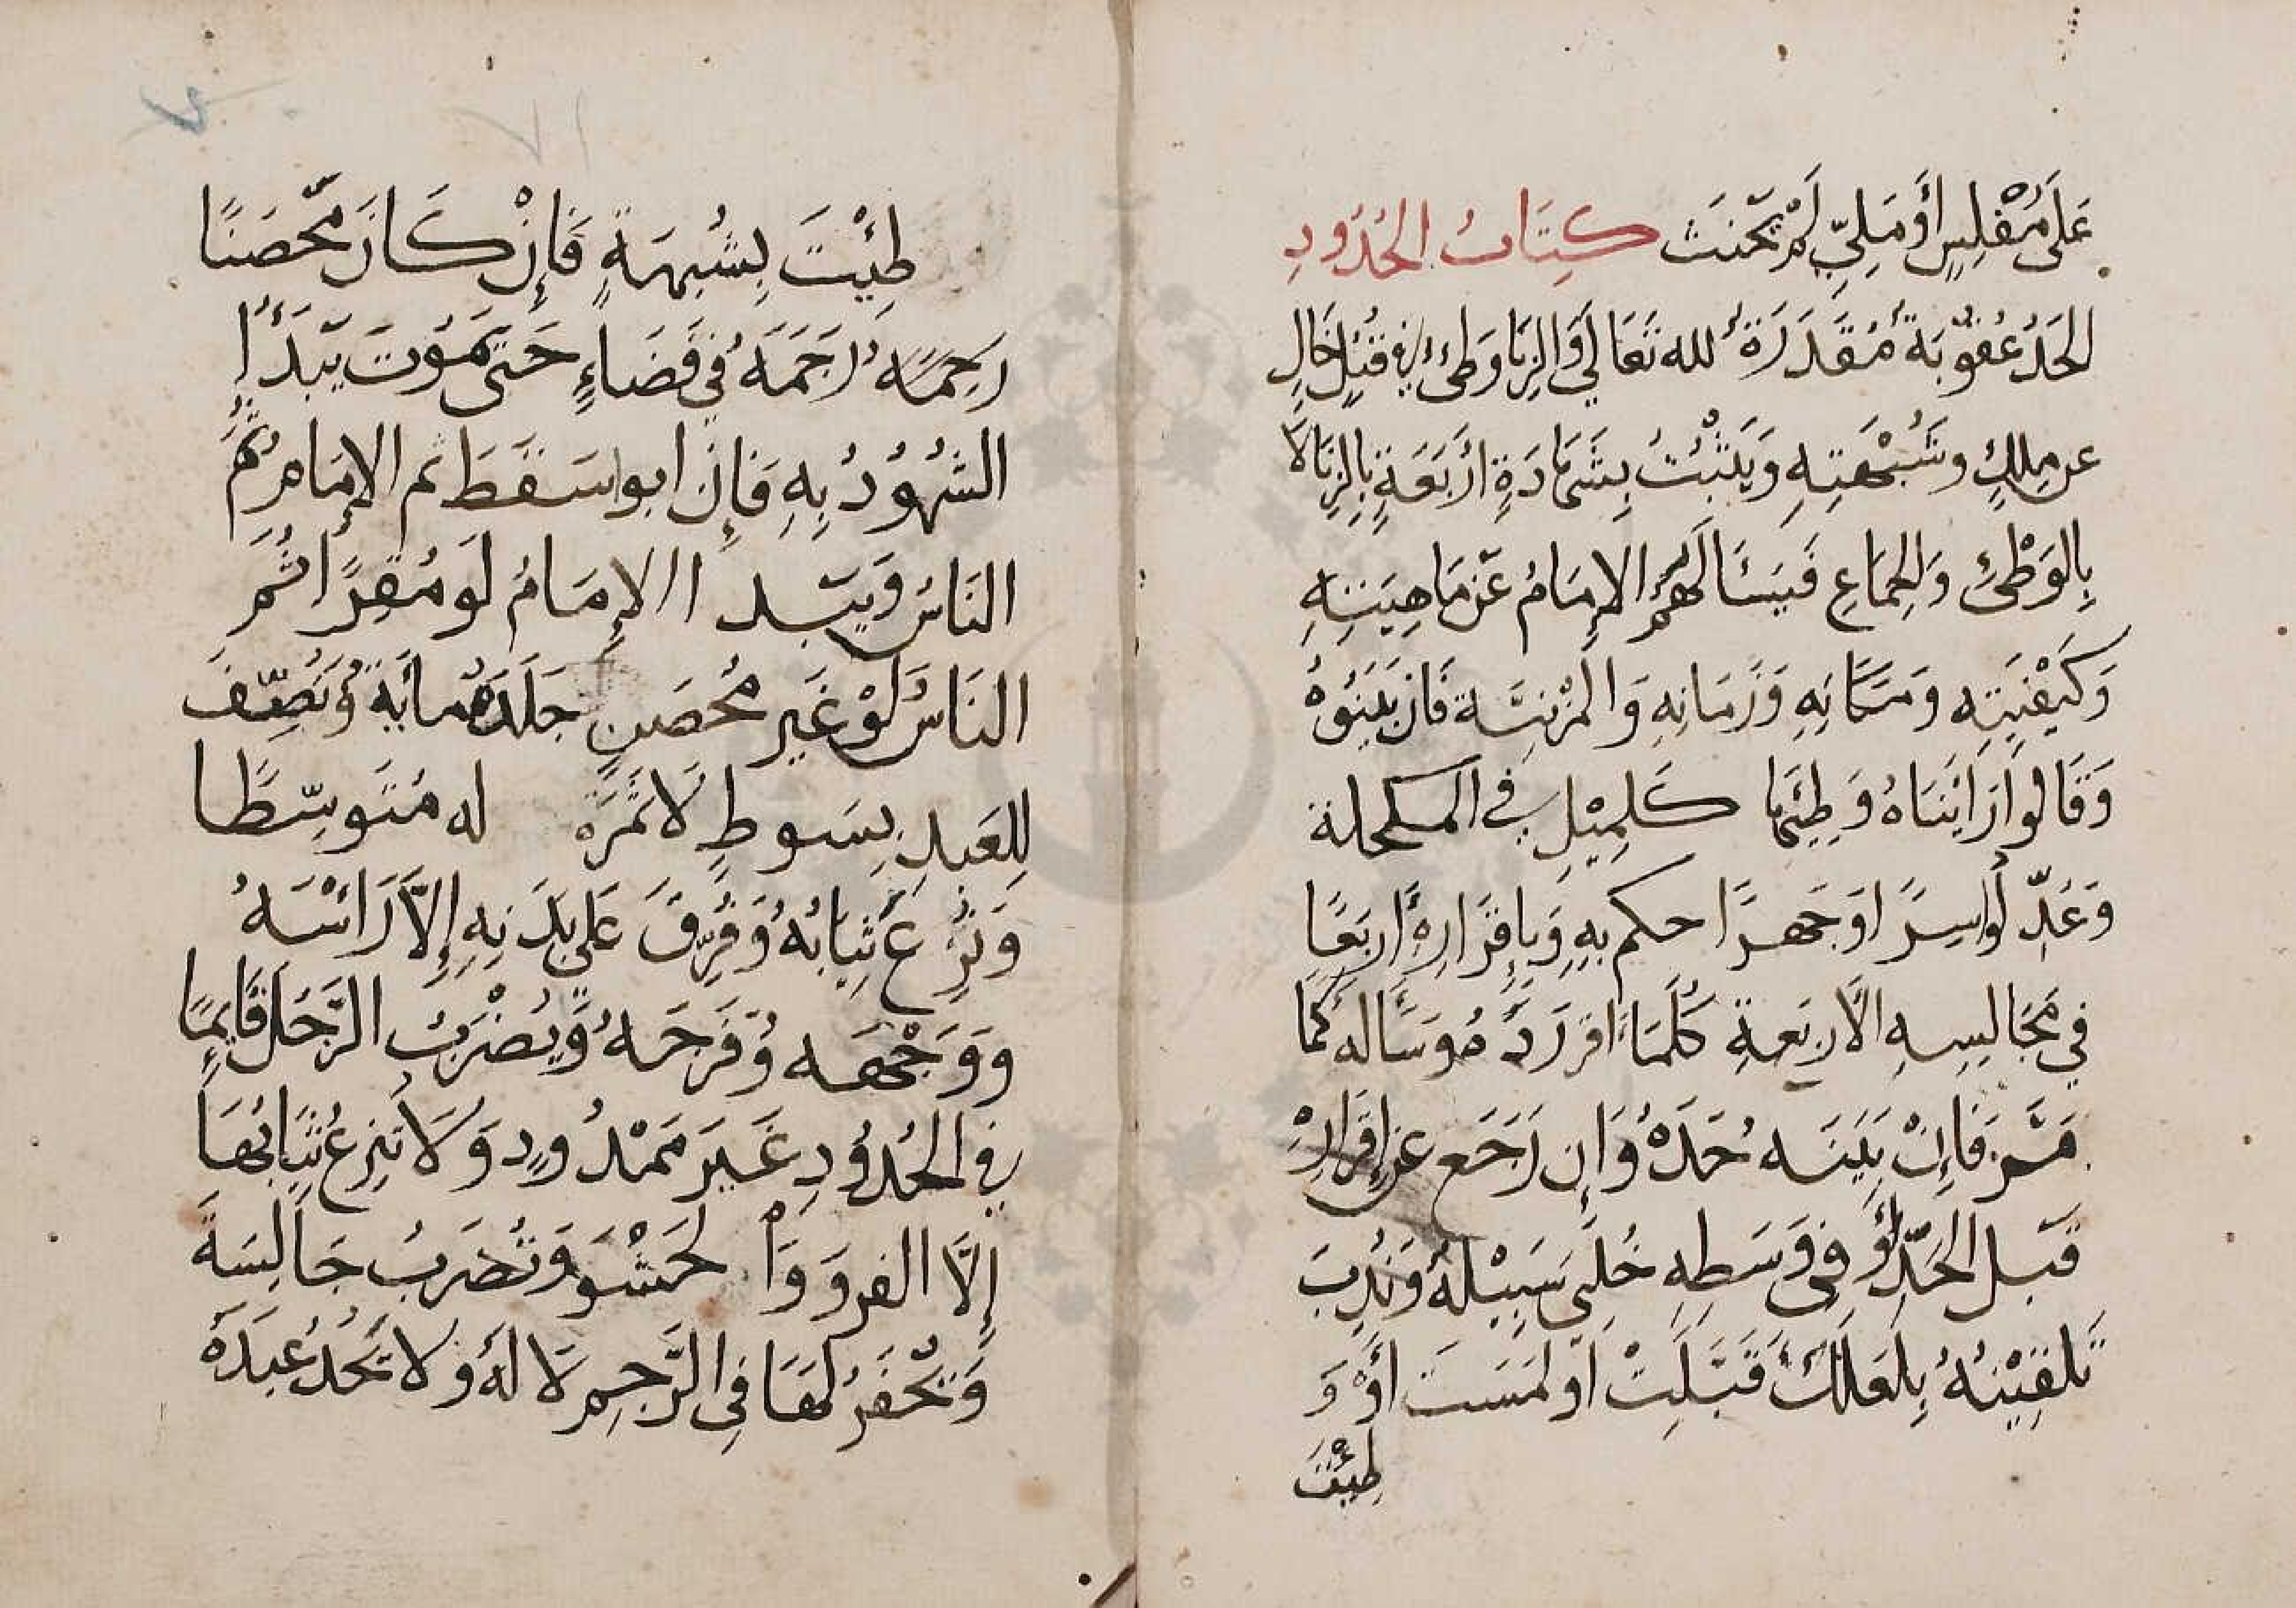 عَلَى مُفْلِسٍ أَو مَلِيّ لَمْ يَحْنَث كِتَابُ الحُدُودِ
الحَدُ عُقُوْبَة مُقَدَرَة لله تَعَالَي وَالزِنَا وَطئ في قُبُلٍ خَالٍ
عن مِلكٍ وشُبْهَتِهِ وَيَثْبُتُ بِشَهَادَةِ ارْبَعَةٍ بِالزِنَا لَا
بِالوَطْئ وَالجِمَاعِ فَيَسْئَالَهُمُ الإِمَامُ عَن مَاهِيَتِهِ
وَكَيْفيَتِهِ وَمَكَانِهِ وَزَمَانِهِ وَالمَزْنِيَّة فَان بَيَنُوهُ
وَقَالوا رَايْنَاهُ وَطِئَهَا كَلمِيْلِ في المكحلة
وَعُدِّلُوا سِرًا اوَ جَهرًا حكم بِهِ وَبِإِقرَارِهِ اربَعًا
في مَجَالِسِهِ الأَربَعَةِ كُلَمَا اقر رَدَهُ وَسَاله كَمَا
مَرَّ فَاِنْ بَيَنَه حُدَهُ وَاِن رَجَع عَن إِقرَارِهِ
قَبل الحَدِّ أو فِى وَسَطِهِ خُلِيَ سَبِيْلهُ وَنُدِبَ
تَلقِيْنُهُ بِلعَلكَ قَبَلتْ اَو لمَسَت أَوْ وَ
طِئْتَ
طِئْتَ بِشُبهَةٍ فَإِنْ كَانَ مُحْصَنًا
رَجَمَهُ في فَضَاءٍ حَتَى يَمُوْتَ يَبْدَأُ
الشُهُوْدُ بِهِ فَاِن ابوا سَقَطَ ثم الإِمَامُ ثُمَّ
النَاسُ وَيَبَدا الإِمَامُ لَو مُقِرًا ثُمَ
النَاسُ وَلَوْ غَير مُحْصَنٍ جَلَدَهُ مائَة وَنُصِّفَ
لِلعَبدِ بِسَوطٍ لَا ثَمَرَة له مُتَوسِّطًا
وَنُزِعَ ثِيَابُهُ وَفُرِّقَ عَلي بَدَنِهِ إِلَّا رَائْسَهُ
وَوَجْهَه وَفَرجَهُ وَيُضْرَبُ الرَّجُل قَائِمًا
في الحُدُوُدِ غَيرَ مَمدُودٍ وَلَا يُنزِعُ ثيَابُهَا
إِلَّا الفرو وَالحَشْو وَتُضَربُ جَالِسَةً
وَيُحْفَرُ لَهَا فِى الرَّجمِ لَا لَهُ وَلا يَحُدُ عَبدَهُ